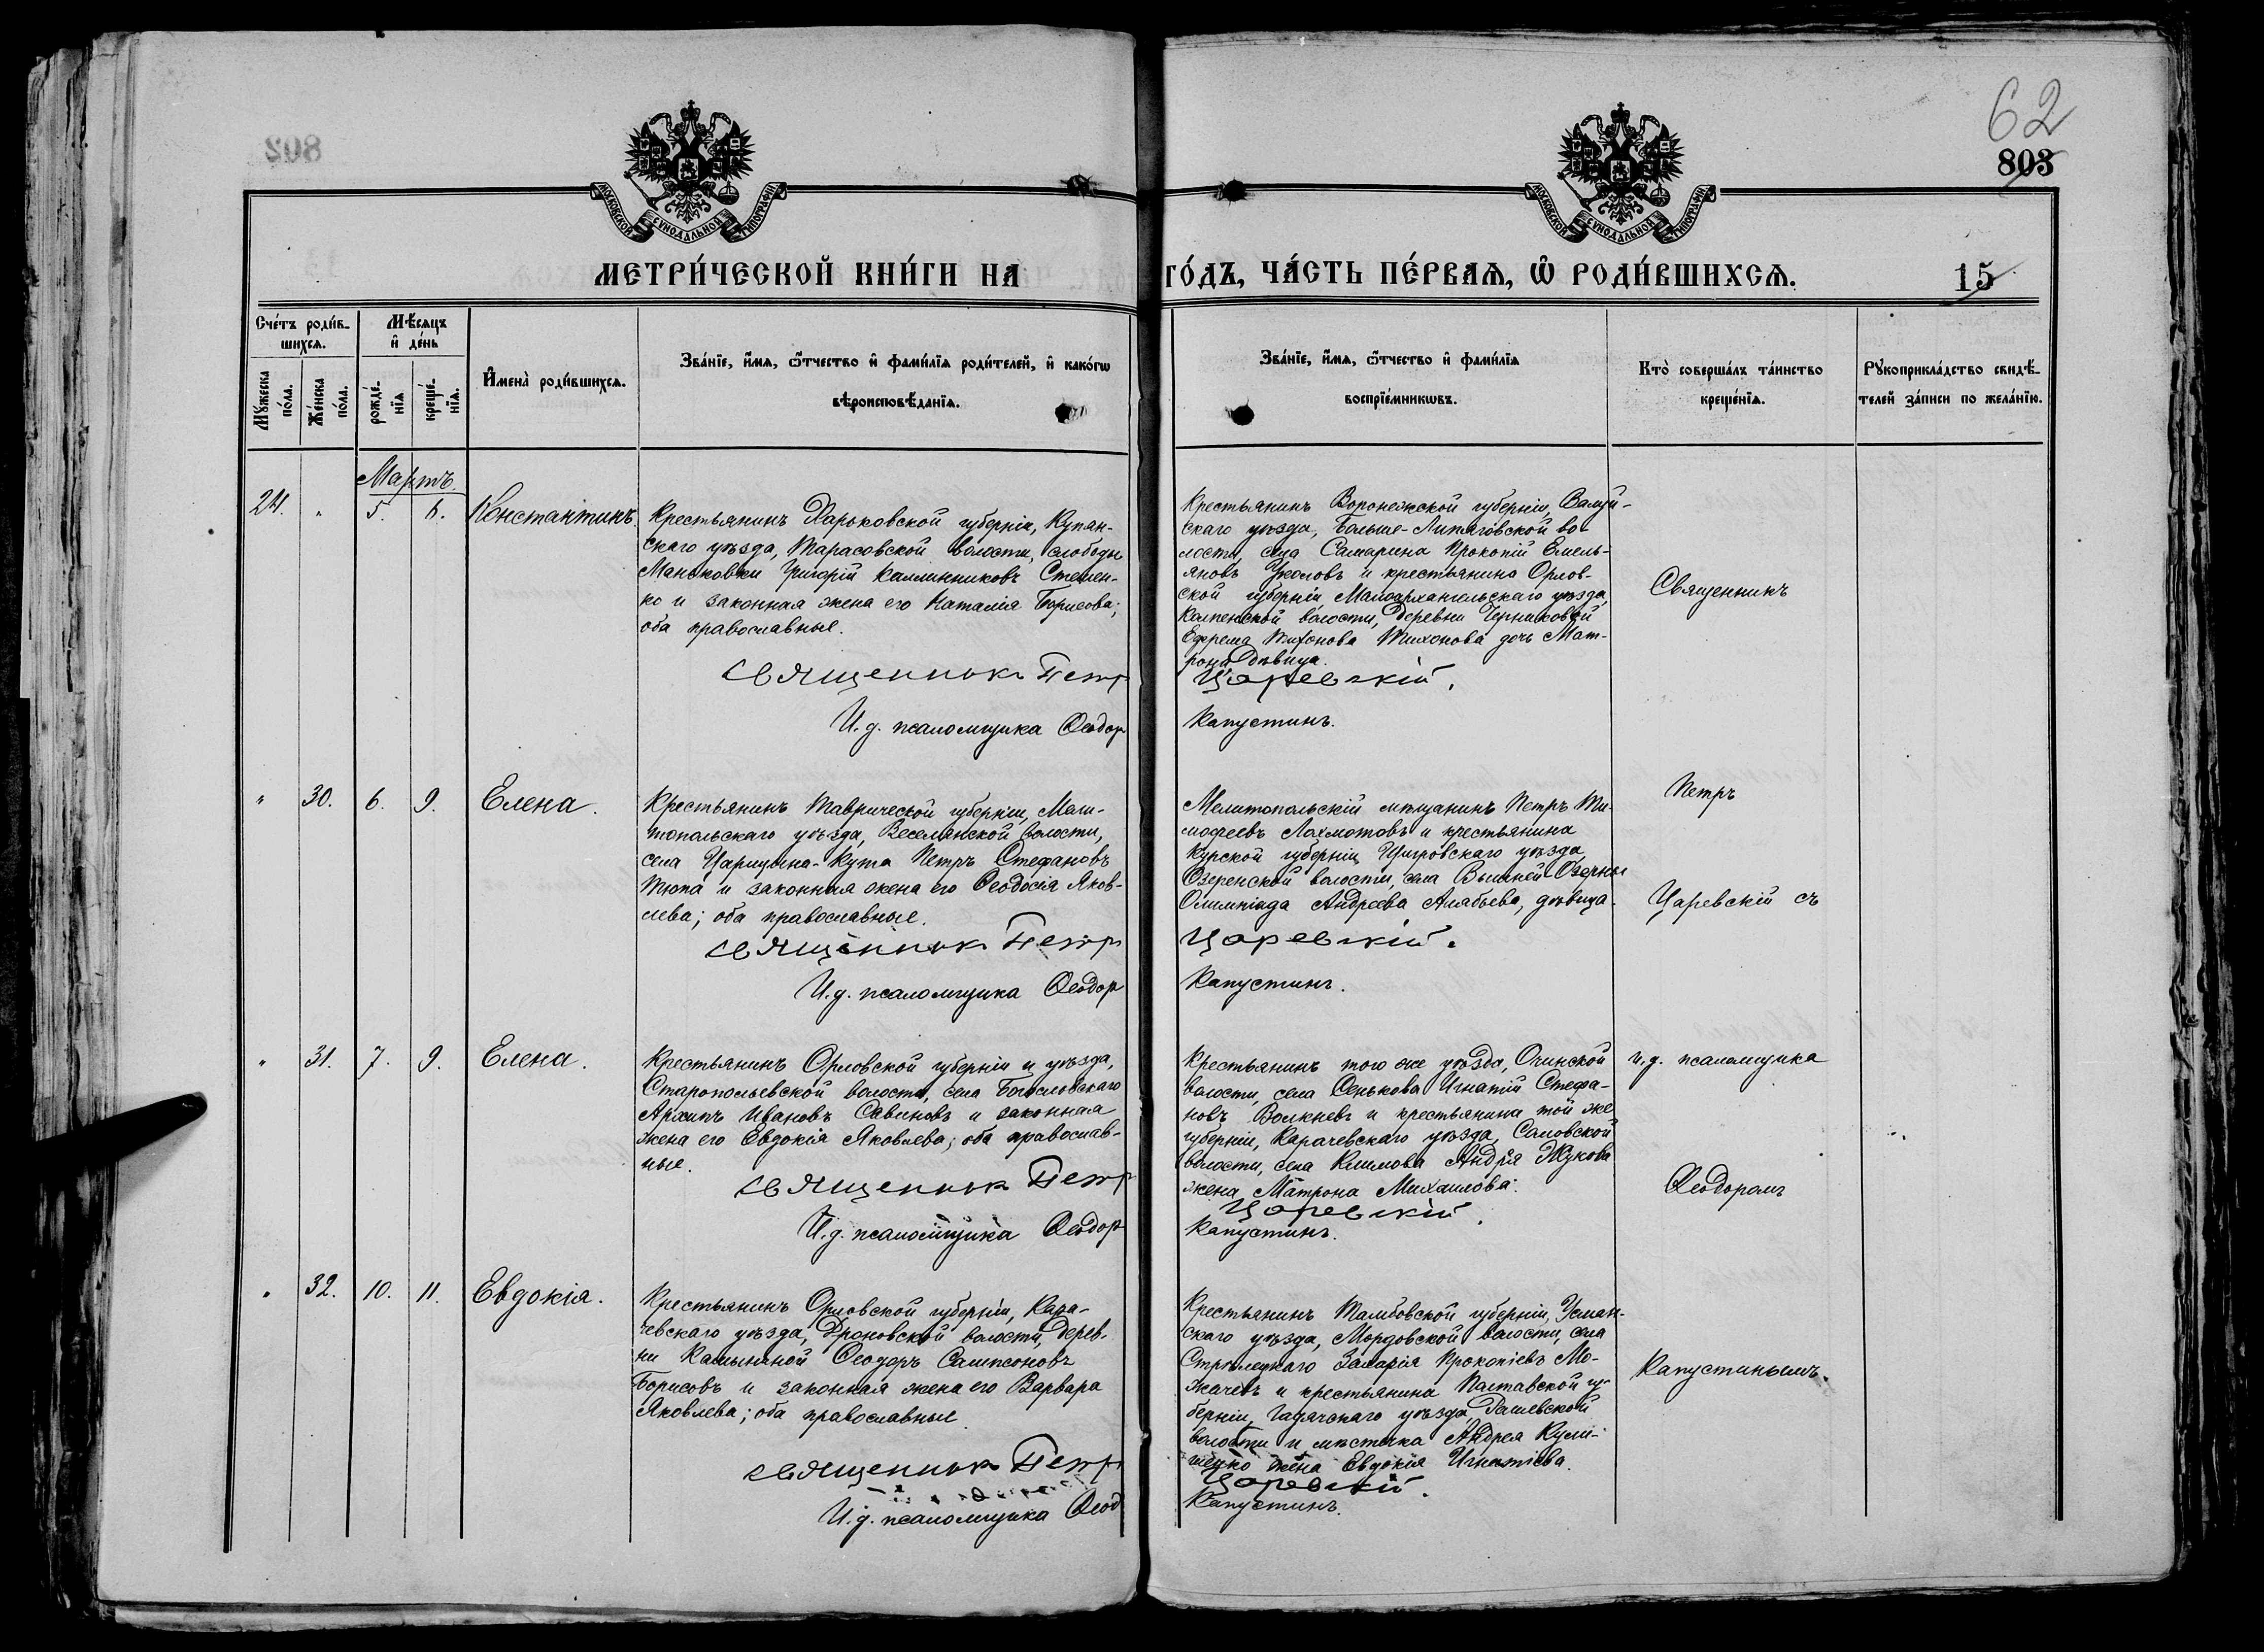 62
803
МОСКОВСКОЙ СѴНОДАЛЬНОЙ ТИПОГРАФІИ
МОСКОВСКОЙ СѴНОДАЛЬНОЙ ТИПОГРАФІИ
МЕТРИ́ЧЕСКОЙ КНИ́ГИ НА
ГО́ДЪ, ЧА́СТЬ ПЕ́РВАѦ, Ѽ РОДИ́ВШИХСѦ.
15
Сче́тъ роди́в-
шихсѧ.
Мѣ́сѧцъ
и҆ де́нь
Мꙋ́жеска
по́ла.
Же́нска
по́ла.
рожде́-
нїѧ
креще́-
нїѧ.
И҆мена̀ роди́вшихсѧ.
Зва́нїе, и҆́мѧ, ѻ҆́тчество и҆ фами́лїѧ роди́телей, и҆ како́гѡ
вѣроисповѣ́данїѧ.
Зва́нїе, и҆́мѧ, ѻ҆́тчество и҆ фами́лїѧ
воспрїе́мникѡвъ.
Кто̀ соверша́лъ та́инство
креще́нїѧ.
Рꙋкоприкла́дство свидѣ́-
телей за́писи по жела́нїю.
Мартъ.
24. " 5. 6. Константинъ.
Крестьянинъ Харьковской губерніи, Купян-
скаго уѣзда, Тарасовской волости, слободы
Маньковки Григорій Каллинниковъ Степен-
ко и законная жена его Наталія Борисова;
оба православные.
Священник Петр
И. д. псаломщика Ѳеодор
Крестьянинъ Воронежской губерніи, Валуй-
скаго уѣзда, Больше-Липяговской во-
лости, села Самарина Прокопій Емель-
яновъ Уколовъ и крестьянина Орлов-
ской губерніи Малоархангельскаго уѣзда,
Колпенской волости, деревни Черниковой
Ефрема Тихонова Тихонова дочь Мат-
рона, дѣвица.
Царевскій.
Капустинъ.
Священникъ
" 30. 6. 9. Елена.
Крестьянинъ Таврической губерніи, Мели-
топольскаго уѣзда, Веселянской волости,
села Царицына-Кута Петръ Стефановъ
Тюпа и законная жена его Ѳеодосія Яков-
лева; оба православные.
Священник Петр
И. д. псаломщика Ѳеодор
Мелитопольскій мѣщанинъ Петръ Ти-
моѳеевъ Лахмотовъ и крестьянина
Курской губерніи Щигровскаго уѣзда,
Озеренской волости, села Вышней Озерны
Олимпіада Андреева Алябьева, дѣвица.
Царевскій.
Капустинъ.
Петръ
Царевскій съ
" 31. 7. 9. Елена.
Крестьянинъ Орловской губерніи и уѣзда,
Старопольевской волости, села Богословскаго
Архипъ Ивановъ Савиновъ и законная
жена его Евдокія Яковлева; оба православ-
ные.
Священник Петр
И. д. псаломщика Ѳеодор
Крестьянинъ того же уѣзда,
волости, села Сенькова Игнатій Стефа-
новъ и крестьянина той же
губерніи, Карачевскаго уѣзда,
волости, села Климова Андрея Жукова
жена Матрона Михаилова.
Царевскій.
Капустинъ.
и. д. псаломщика
Ѳеодоромъ
" 32. 10. 11. Евдокія.
Крестьянинъ Орловской губерніи, Кара-
чевскаго уѣзда, Дроновской волости, дерев-
ни Ѳеодоръ Сампсоновъ
Борисовъ и законная жена его Варвара
Яковлева; оба православные
Священник Петр
И. д. псаломщика Ѳеод
Крестьянинъ Тамбовской губерніи, Усман-
скаго уѣзда, Мордовской волости, села
Стрѣлецкаго Захарія Прокопіевъ
и крестьянина Полтавской гу-
берніи, Гадячскаго уѣзда, Рашевской
волости и мѣстечка Андрея
жена Евдокія Игнатіева.
Царевскій.
Капустинъ.
Капустинымъ.